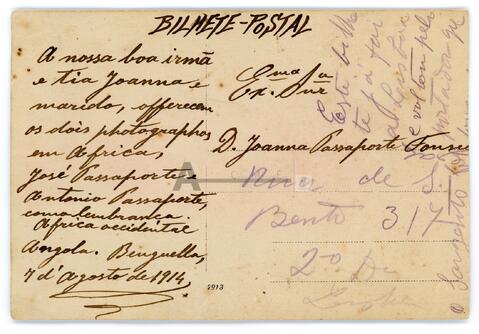 BILHETE-POSTAL
A nossa boa irmã
e tia Joanna e
marido, offerecem
os dois photographos
em Africa,
José Passaporte e
Antonio Passaporte,
como lembrança.
Africa occidental
Angola. Benguella,
7 d'Agosto de 1914
Exma Sra
D. Joanna Passaporte Fonseca
Rua de S.
Bento 317
2º
Este bilhe
te já foi
e voltou pelo
2913